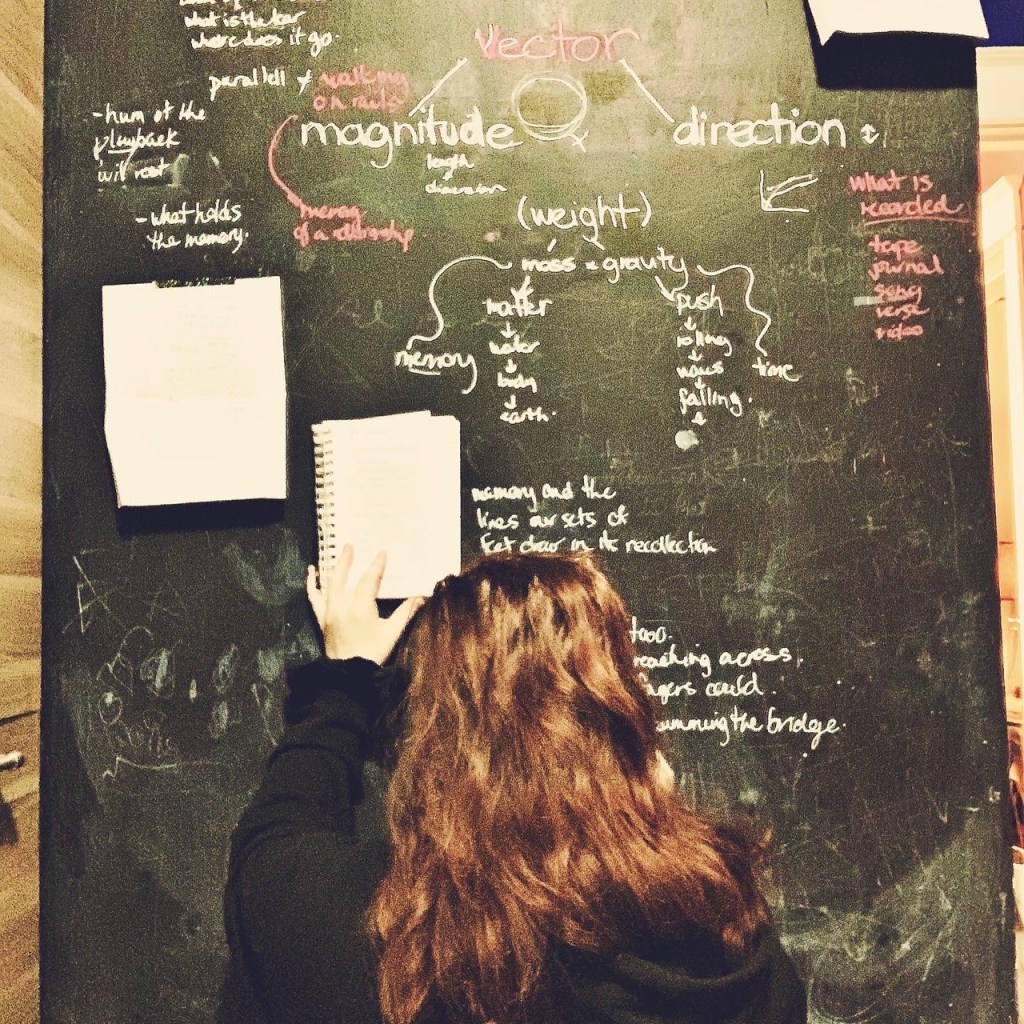 what is the
where does it go.
vector
parallel
walking
on rails
- hum of the
playback
will root
magnitude
direction
length
dimension
- what holds
the memory.
memory
of a relationship
(weight)
what is
recorded
tape
journal
song
verse
video
mass × gravity
matter
push
water
rolling
memory
body
waves
time
earth.
falling.
memory and the
lines our sets of
feet draw in its recollection
too.
reaching across.
fingers could.
humming the bridge.